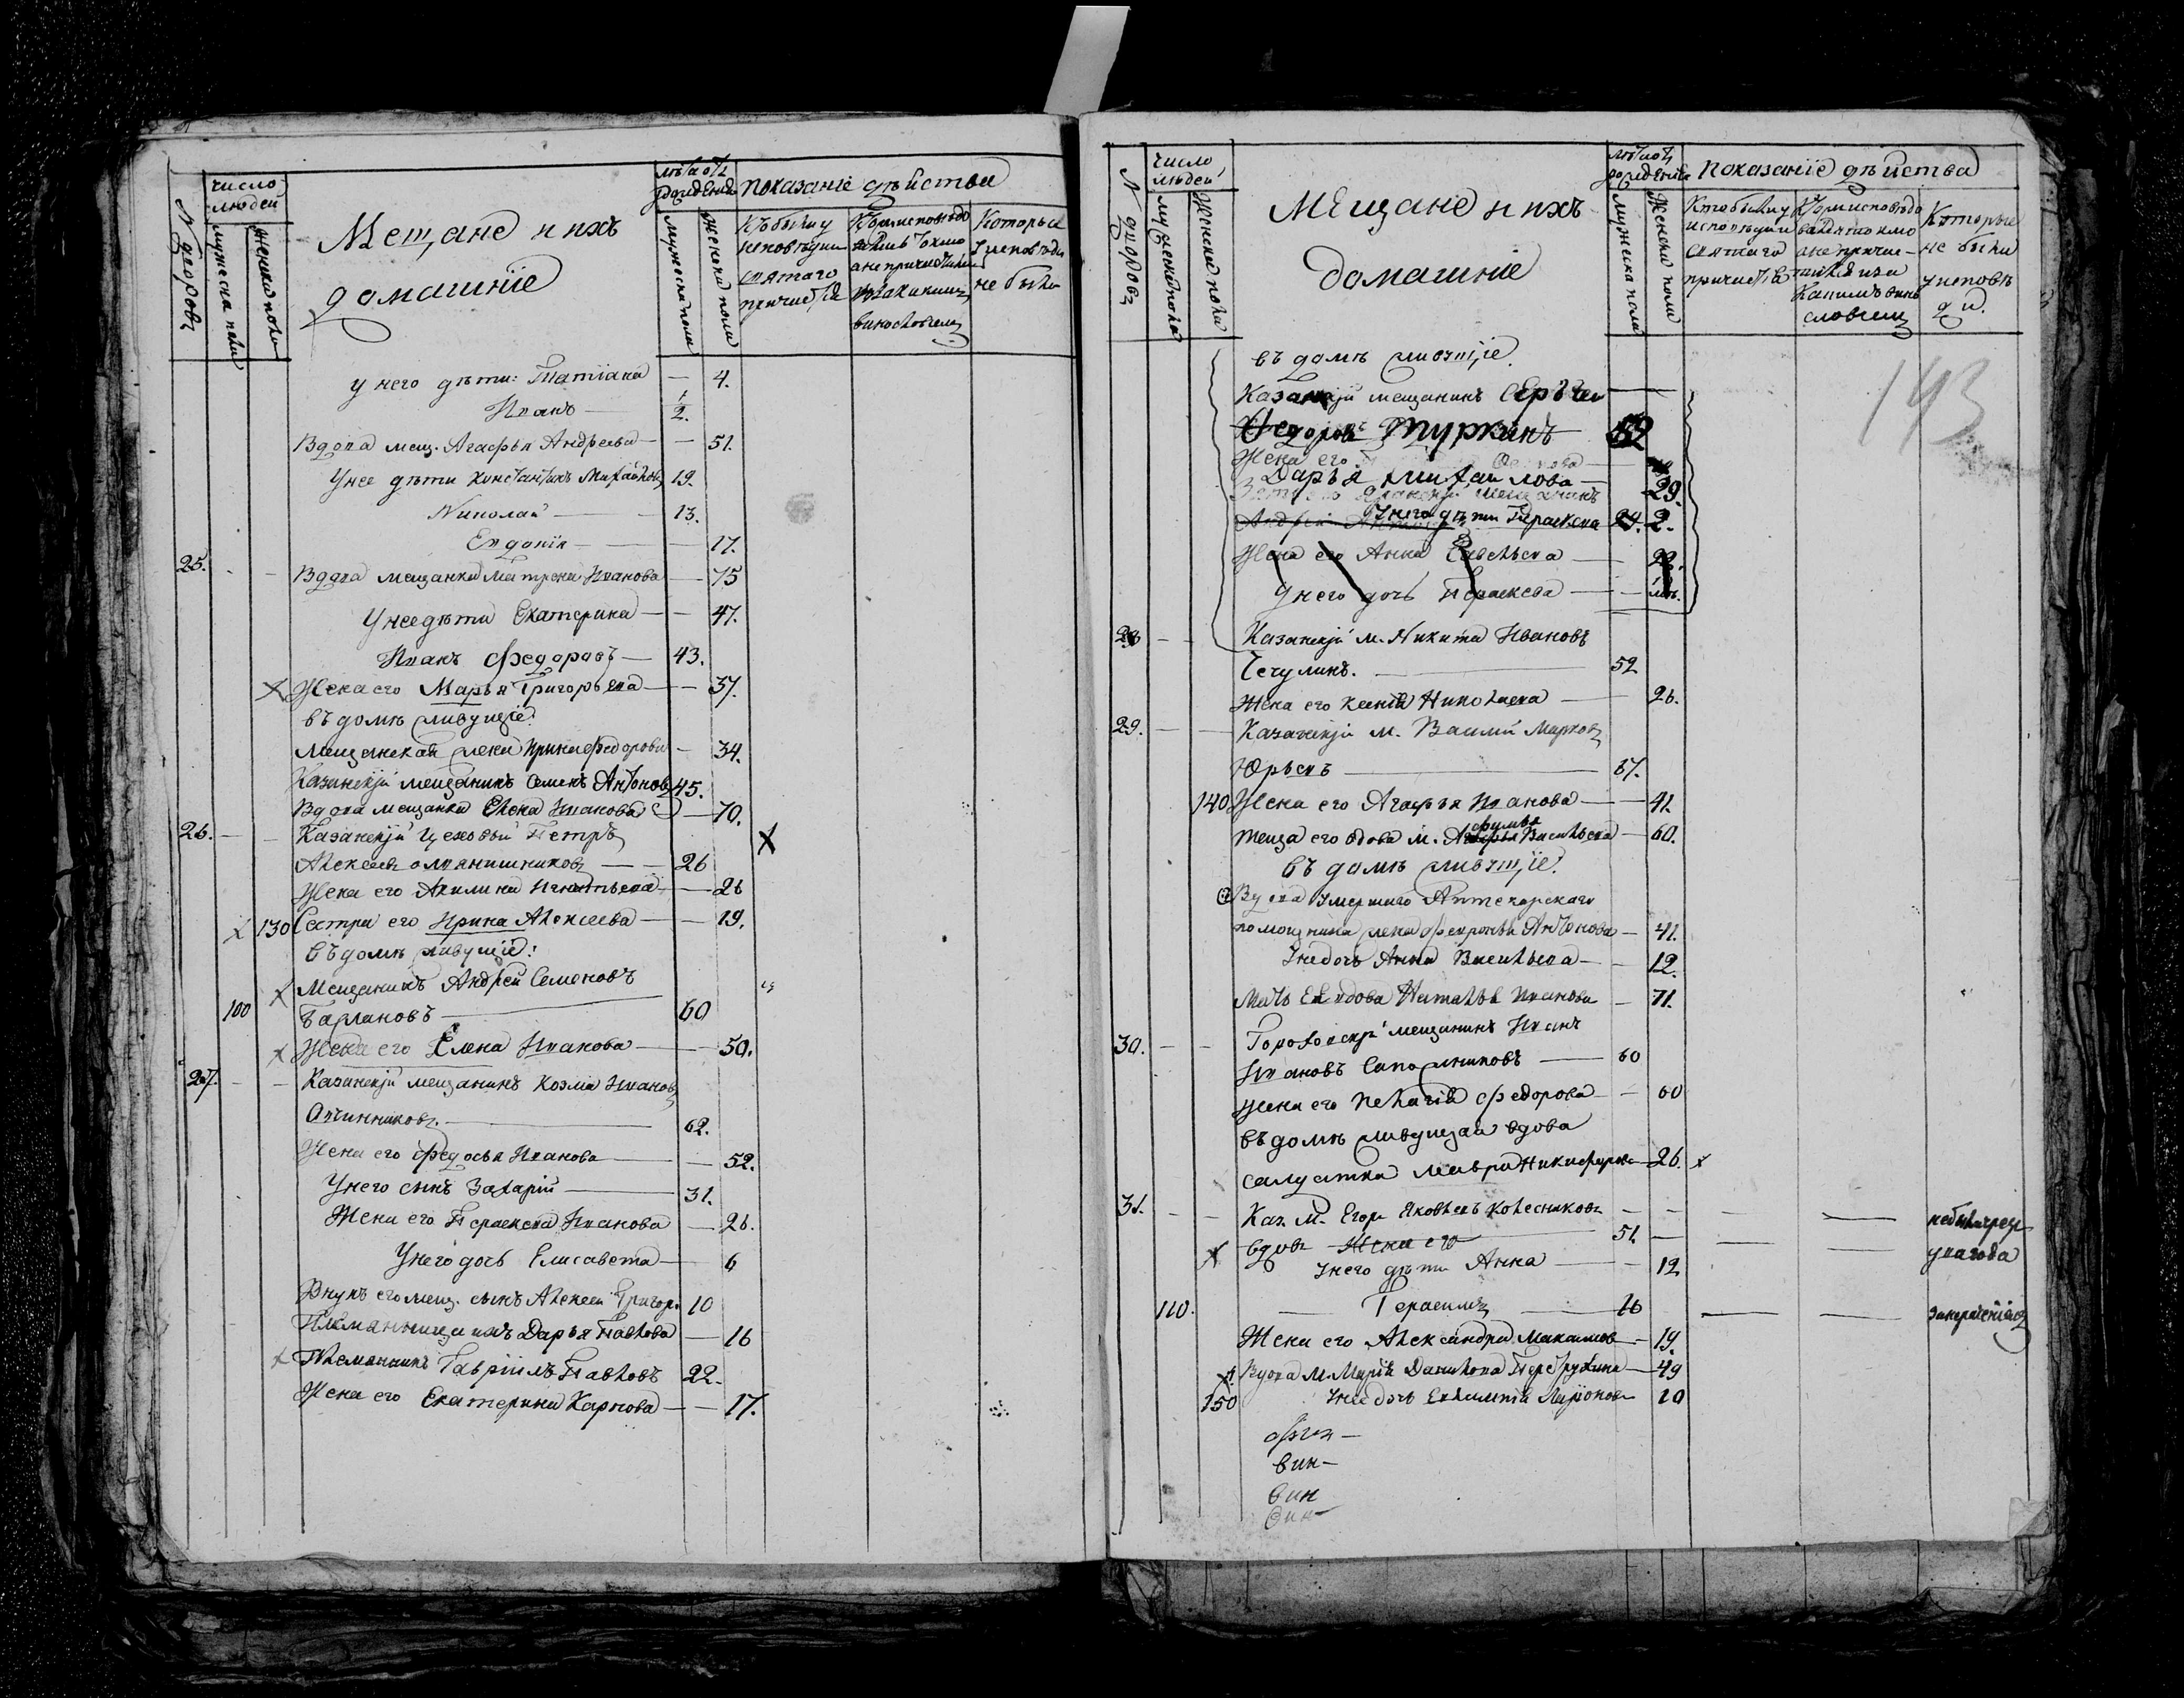 число
людей
№ дворовъ
мужеска пола
женска пола
Мещане и ихъ
домашніе
лѣта отъ
рожденія
мужеска пола
женска пола
показаніе дѣйства
Кто былъ у
исповѣди и
святаго
причастія
Кто исповѣдо
вался токмо
а не причастился
и за какимъ
винословіемъ
Которые
у исповѣди
не были
у него дѣти: Татіана — 4.
Иванъ — 1/2.
Вдова мещ. Агафья Андреева — 51.
У нее дѣти Константинъ Михайловъ 19.
Николай — 13.
Евдокія — 17.
25. Вдова мещанка Матрена Иванова — 75
У нее дѣти Екатерина — 47.
Иванъ Федоровъ — 43.
Жена его Марья Григорьева — 37.
въ домѣ живущіе:
Мещанская жена Ирина Федорова — 34.
Казанскій мещанинъ Семенъ Антоновъ 45.
Вдова мещанка Елена Иванова — 70.
26. Казанскій цеховый Петръ
Алексеевъ — 26
Жена его Акилина Игнатьева — 26
130 Сестра его Ирина Алексеева — 19.
въ домѣ живущіе:
Мещанинъ Андрей Семеновъ
100 Барлановъ — 60
Жена его Елена Иванова — 50.
27. Казанскій мещанинъ Козма Ивановъ
Овчинниковъ. — 62.
Жена его Федосья Иванова — 52.
У него сынъ Захарій — 31.
Жена его Параскева Иванова — 26.
У него дочь Елисавета — 6
Внукъ его мещ. сынъ Алексей Григор. 10
Племянница ихъ Дарья Павлова — 16
Племянникъ Гавріилъ Павловъ 22.
Жена его Екатерина Карпова — 17.
№ дворовъ
число
людей
мужеска пола
женска пола
Мещане и ихъ
домашніе
лѣта отъ
рожденія
мужеска пола
женска пола
показаніе дѣйства
Кто былъ у
исповѣди и
святаго
причастія
Кто исповѣдо
вался токмо
а не причас-
тился и за
какимъ вино
словіемъ
Которые
не были
у исповѣ
ди.
193
въ домѣ живущіе
Казанскій мещанинъ Сергей
Федоровъ Туркинъ
Жена его
Дарья Михайлова — 29.
У него дѣти Параскева 2.
Жена его Анна Савельева — 22.
У него дочь Параскева —
28 Казанскій м. Никита Ивановъ
Чечулинъ. — 52
Жена его Ксенія Николаева — 26.
29. Казанскій м. Василій Марковъ
Юрьевъ — 67.
140 Жена его Агафья Иванова — 41.
Теща его вдова м. Васильева — 60.
въ домѣ живущіе:
Вдова умершаго Аптекарскаго
помощника жена Февронья Антонова — 41.
У нее дочь Анна Васильева — 12.
Мать ея вдова Наталья Иванова — 71.
30. мещанинъ Иванъ
Ивановъ Сапожниковъ — 60
Жена его Пелагія Федорова — 60
въ домѣ живущая вдова
салдатка Мавра Никифорова 26.
31. Каз. М. Егоръ Яковлевъ Колесниковъ
вдовъ Жена его — 51.
У него дѣти Анна — 12
110. Герасимъ — 16
Жена его Александра Максимов — 19.
Вдова м. Марія Данилова — 49
150 У нее дочь Евлампія Ларіонова 10
вин-
вин
вин